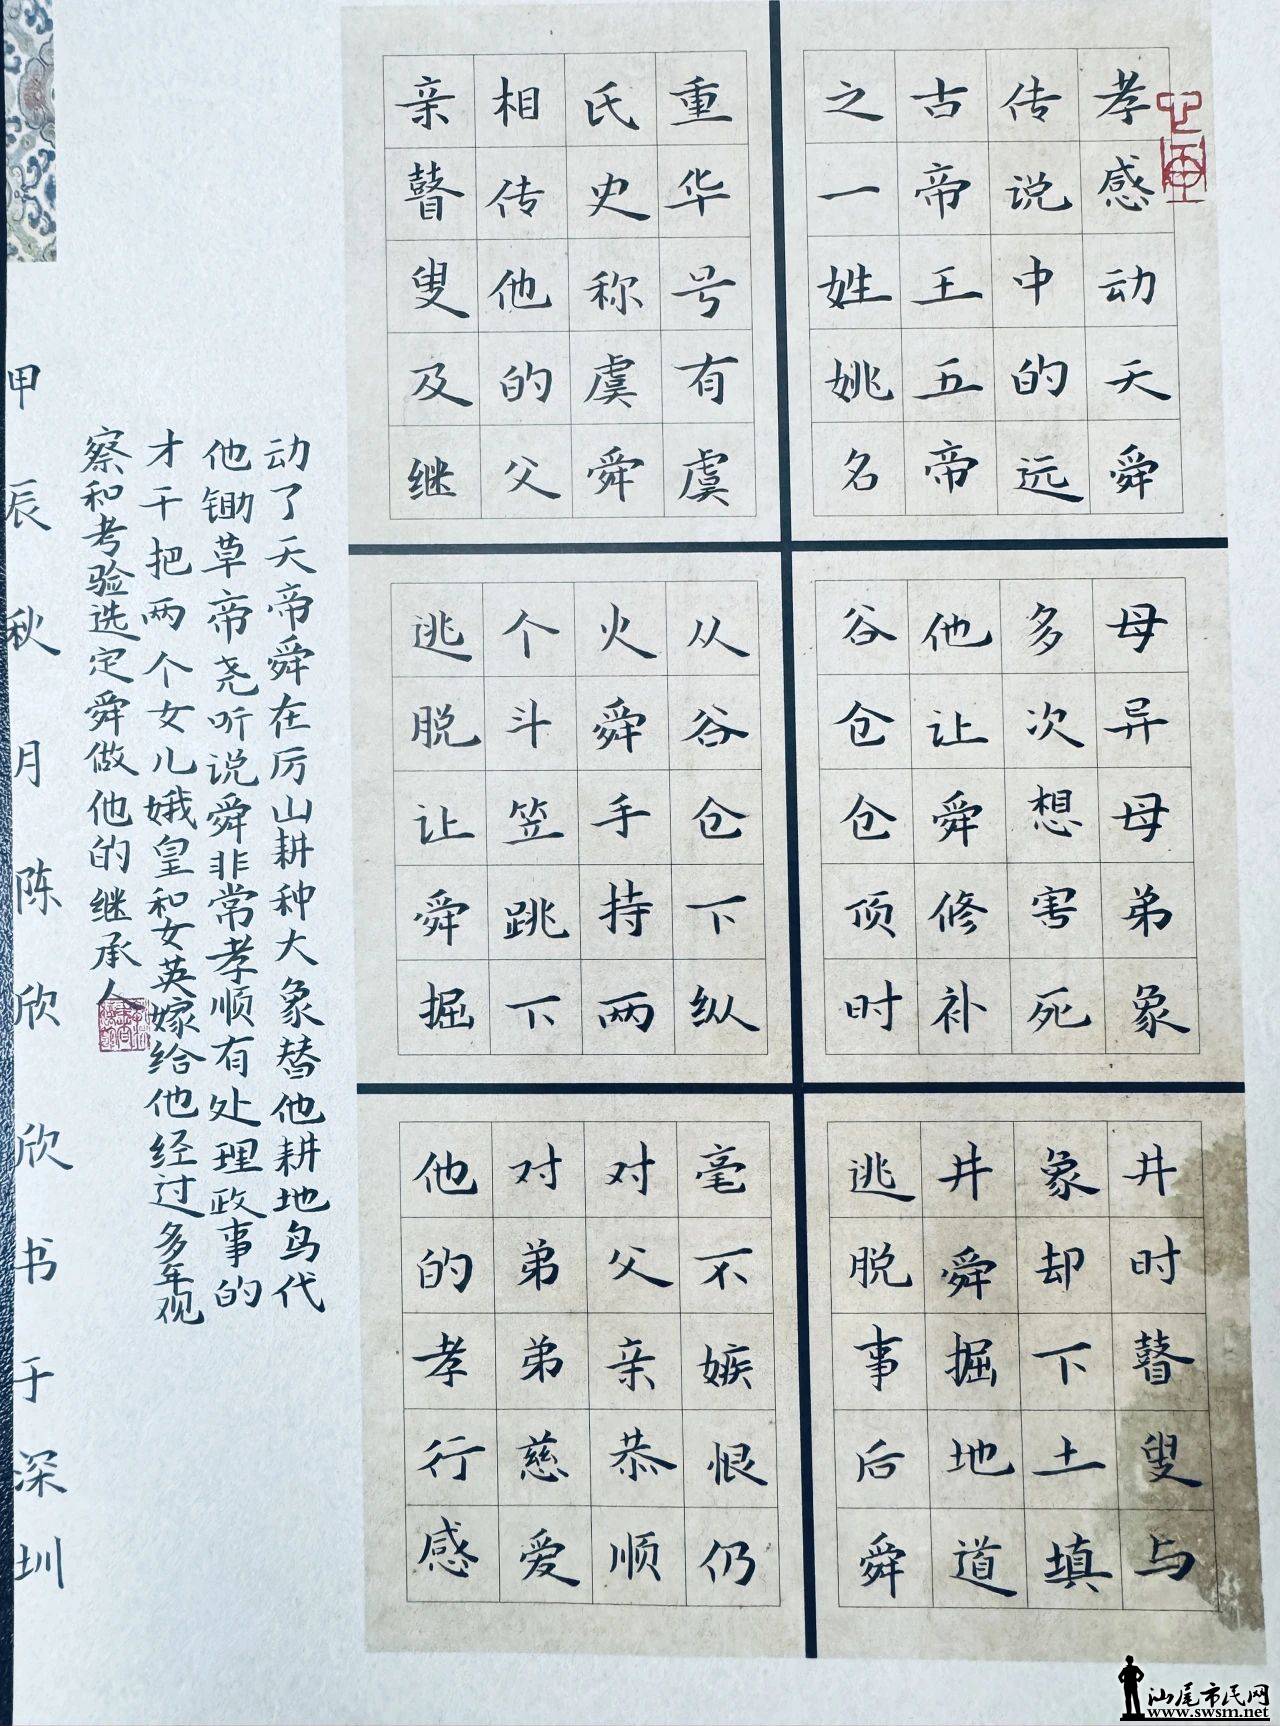 孝感动天舜
传说中的远
古帝王五帝
之一姓姚名
重华号有虞
氏史称虞舜
相传他的父
亲瞽叟及继
母异母弟象
多次想害死
他让舜修补
谷仓仓顶时
从谷仓下纵
火舜手持两
个斗笠跳下
逃脱让舜掘
井时瞽叟与
象却下土填
井舜掘地道
逃脱事后舜
毫不嫉恨仍
对父亲恭顺
对弟弟慈爱
他的孝行感
动了天帝舜在厉山耕种大象替他耕地鸟代
他锄草帝尧听说舜非常孝顺有处理政事的
才干把两个女儿娥皇和女英嫁给他经过多年观
察和考验选定舜做他的继承人
甲辰秋月陈欣欣书于深圳
汕尾市民网
www.swsm.net